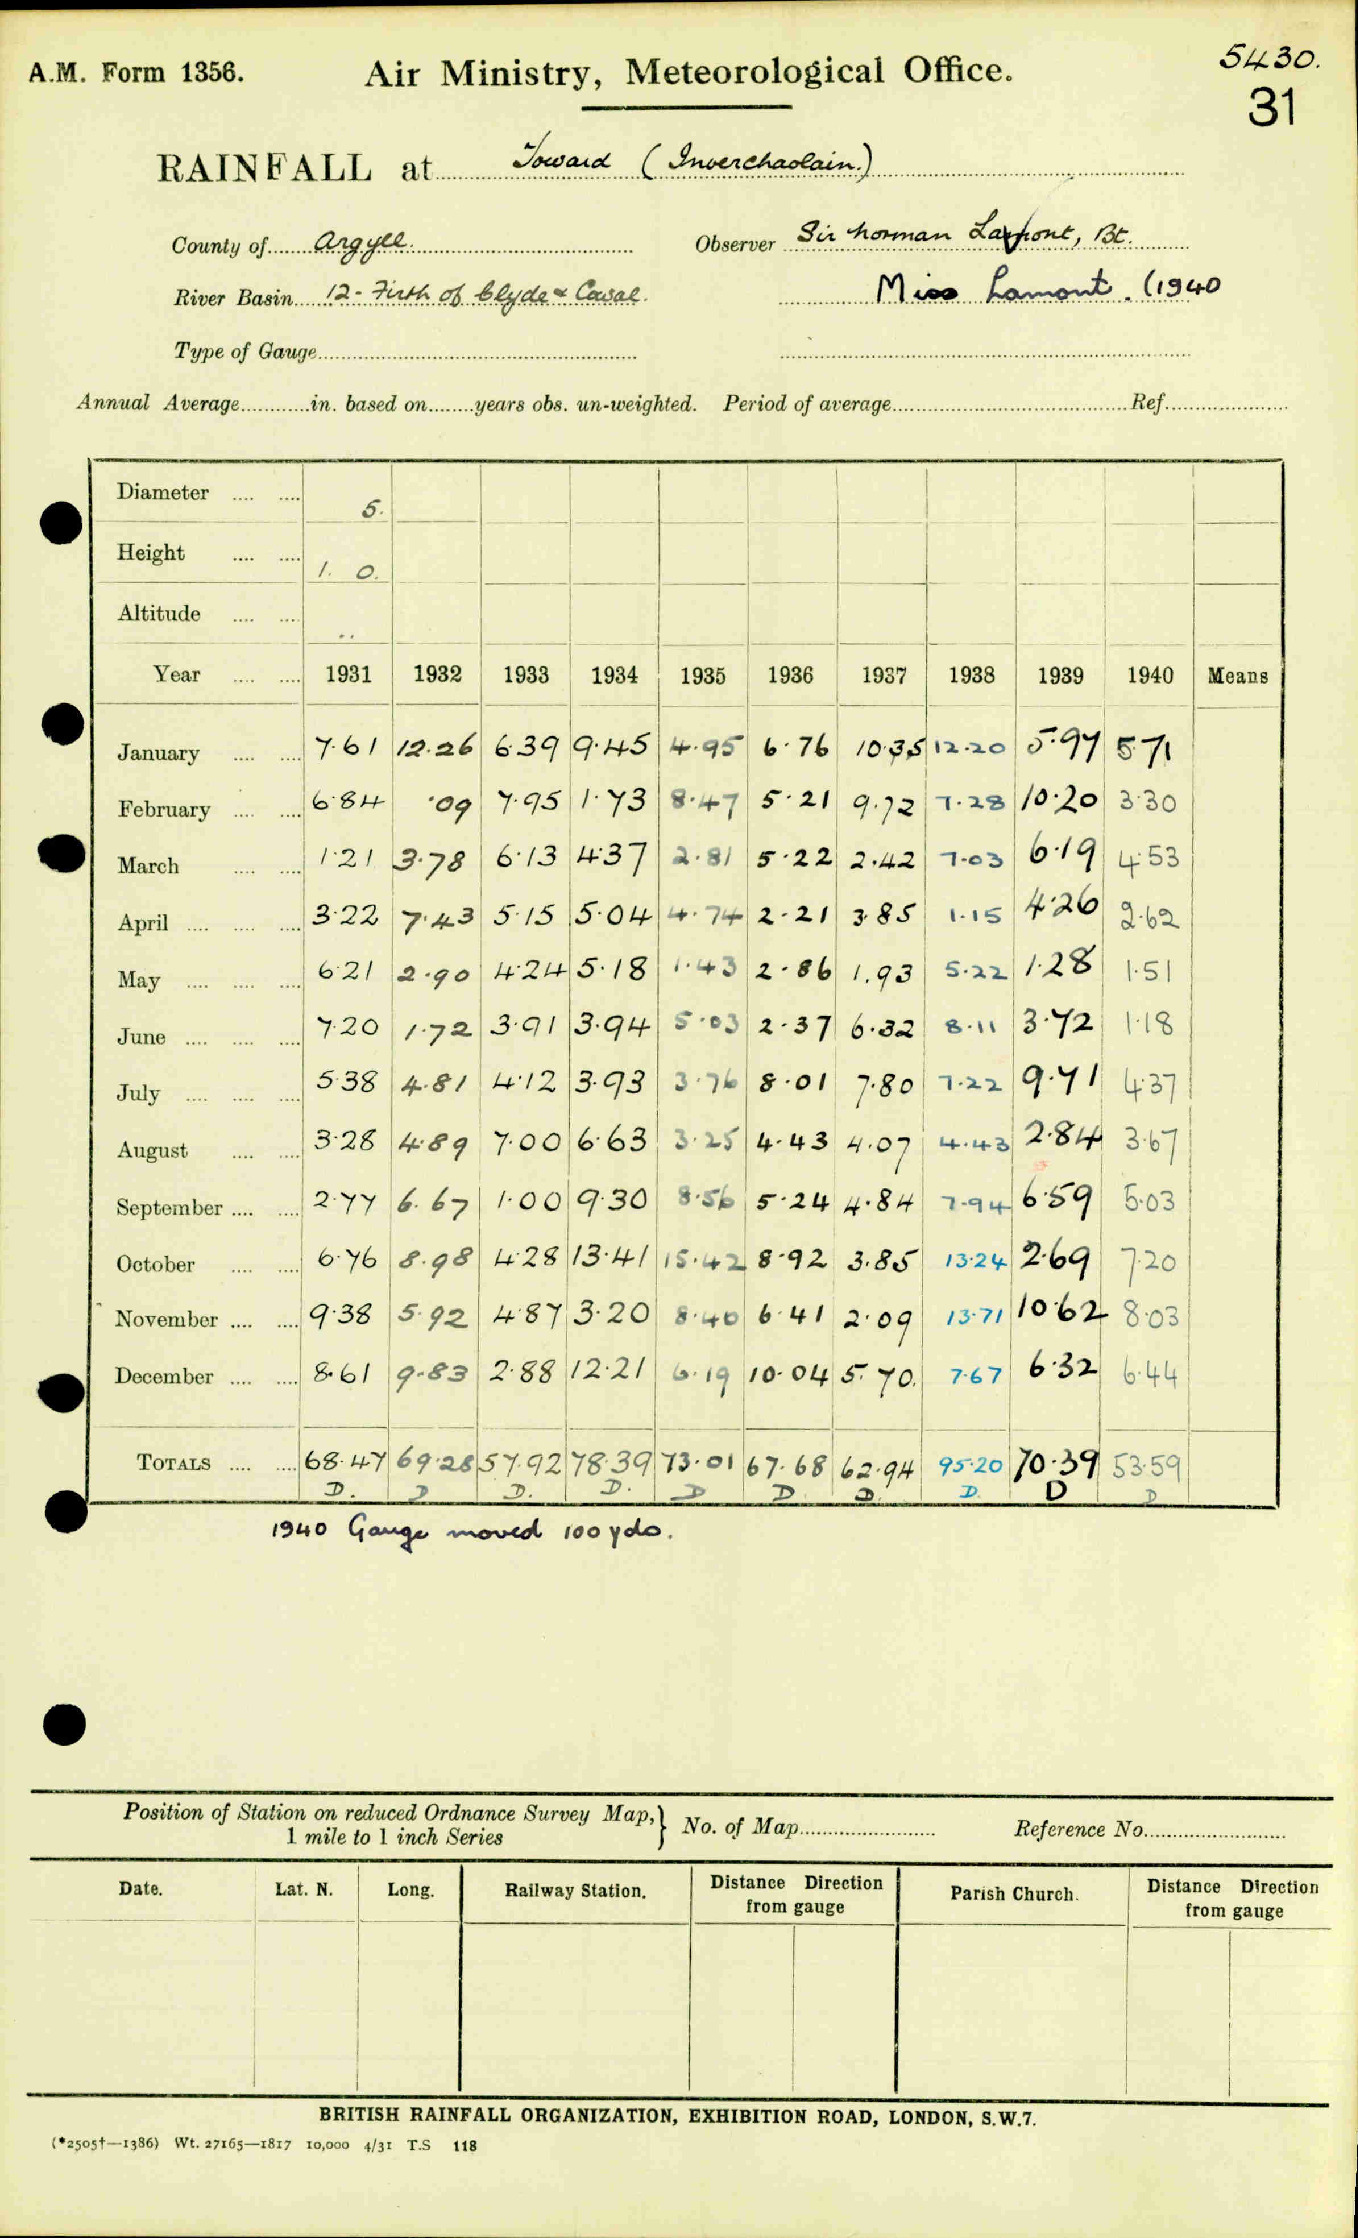 A.M. Form 1356.
Air Ministry, Meteorological Office.
5430.
31
RAINFALL at Toward (Inverchaolain.)
County of Argyll. Observer Sir Norman Lamont, Bt.
River Basin 12 - Firth of Clyde & Cowal. Miss Lamont. (1940
Type of Gauge
Annual Average in. based on years obs. un-weighted. Period of average Ref.
Diameter 5.
Height 1. 0.
Altitude ..
Year 1931 1932 1933 1934 1935 1936 1937 1938 1939 1940 Means
January 7.61 12.26 6.39 9.45 4.95 6.76 10.35 12.20 5.97 5.71
February 6.84 .09 7.95 1.73 8.47 5.21 9.72 7.28 10.20 3.30
March 1.21 3.78 6.13 4.37 2.81 5.22 2.42 7.03 6.19 4.53
April 3.22 7.43 5.15 5.04 4.74 2.21 3.85 1.15 4.26 2.62
May 6.21 2.90 4.24 5.18 1.43 2.86 1.93 5.22 1.28 1.51
June 7.20 1.72 3.91 3.94 5.03 2.37 6.32 8.11 3.72 1.18
July 5.38 4.81 4.12 3.93 3.76 8.01 7.80 7.22 9.71 4.37
August 3.28 4.89 7.00 6.63 3.25 4.43 4.07 4.43 2.84 3.67
September 2.77 6.67 1.00 9.30 8.56 5.24 4.84 7.94 6.59 5.03
October 6.76 8.98 4.28 13.41 15.42 8.92 3.85 13.24 2.69 7.20
November 9.38 5.92 4.87 3.20 8.40 6.41 2.09 13.71 10.62 8.03
December 8.61 9.83 2.88 12.21 6.19 10.04 5.70. 7.67 6.32 6.44
TOTALS 68.47 69.28 57.92 78.39 73.01 67.68 62.94 95.20 70.39 53.59
D. D D. D. D D. D. D. D D
1940 Gauge moved 100 yds.
Position of Station on reduced Ordnance Survey Map,} No. of Map Reference No.
1 mile to 1 inch Series
Date. Lat. N. Long. Railway Station. Distance Direction from gauge Parish Church. Distance Direction from gauge
BRITISH RAINFALL ORGANIZATION, EXHIBITION ROAD, LONDON, S.W.7.
(*2505†—1386) Wt. 27165—1817 10,000 4/31 T.S 118